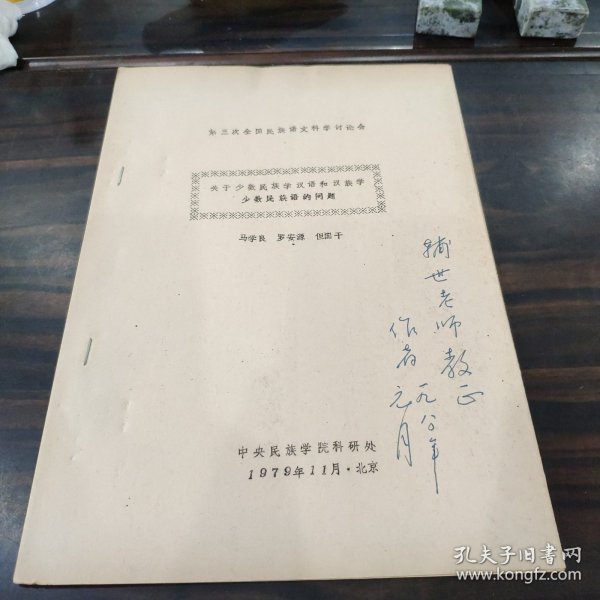 第三次全国民族语文科学讨论会
关于少数民族学汉语和汉族学
少数民族语的问题
马学良 罗安源 但国干
辅世老师教正
作者
一九八〇年
元月
中央民族学院科研处
1979年11月·北京
孔夫子旧书网
www.kongfz.com